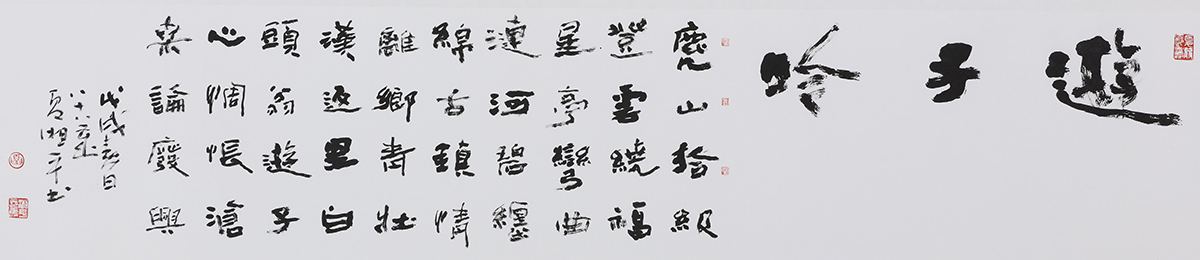 遊子吟
麂山拾級
登雲繞福
星亭彎曲
漣河碧纏
綿古鎮情
離鄉青壯
漢返里白
頭翁遊子
心惆悵滄
桒論廢興
戊戌春日
八十六
夏湘平書